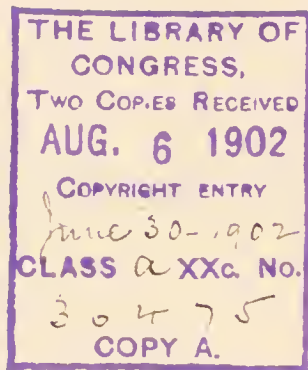 THE LIBRARY OF
CONGRESS,
TWO COPIES RECEIVED
AUG. 6 1902
COPYRIGHT ENTRY
June 30-1902
CLASS a XXc. No.
30475
COPY A.